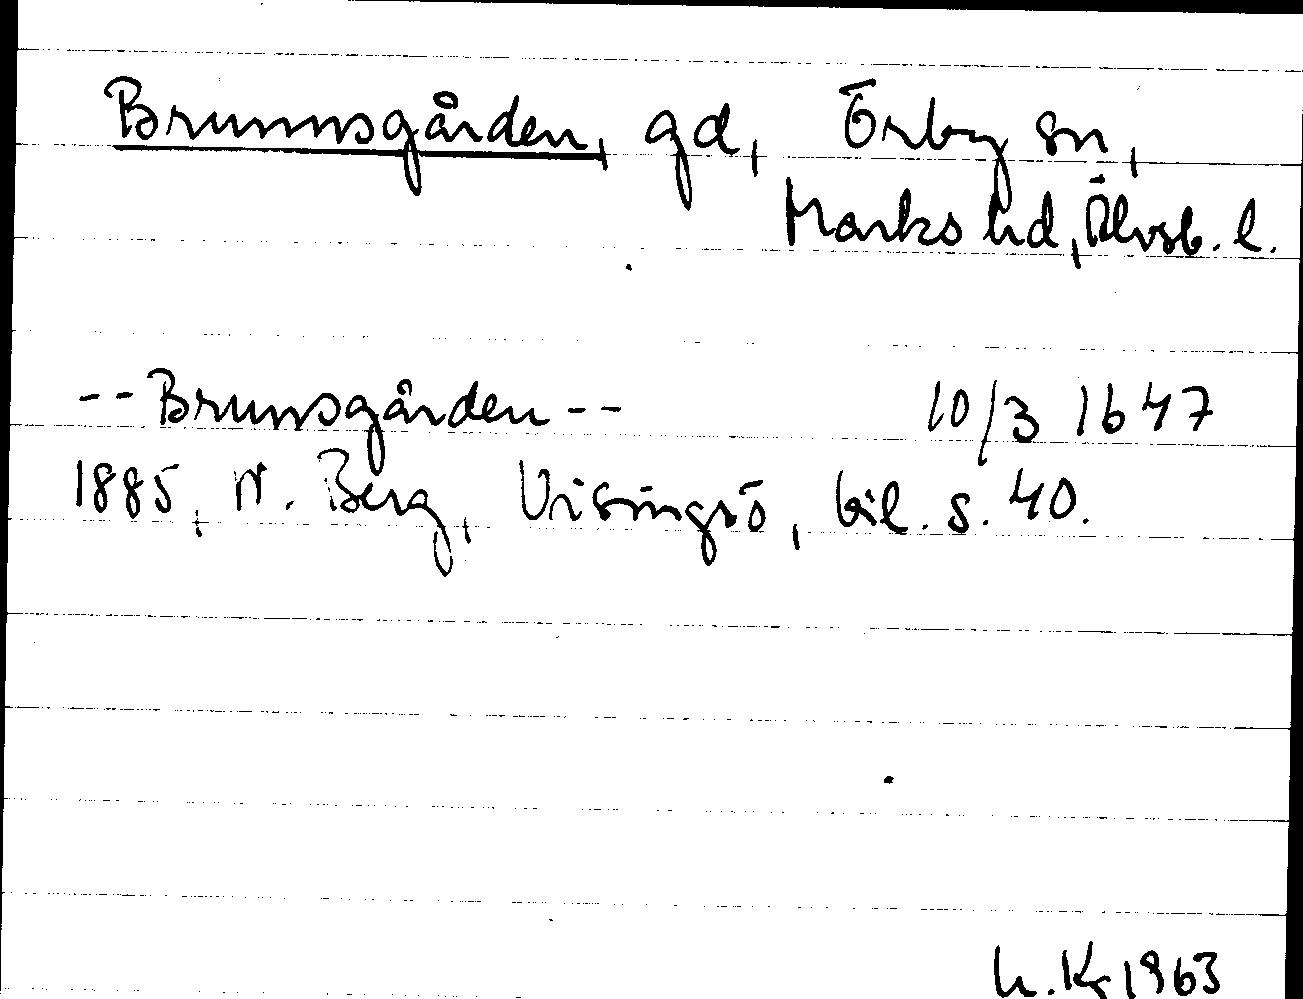 Brunnsgården, gd, Örby sn,
Marks hd, Älvsb. l.
-- Brunsgården -- 10/3 1647
1885, W. Berg, Visingsö, bil. s. 40.
h. Kr 1963